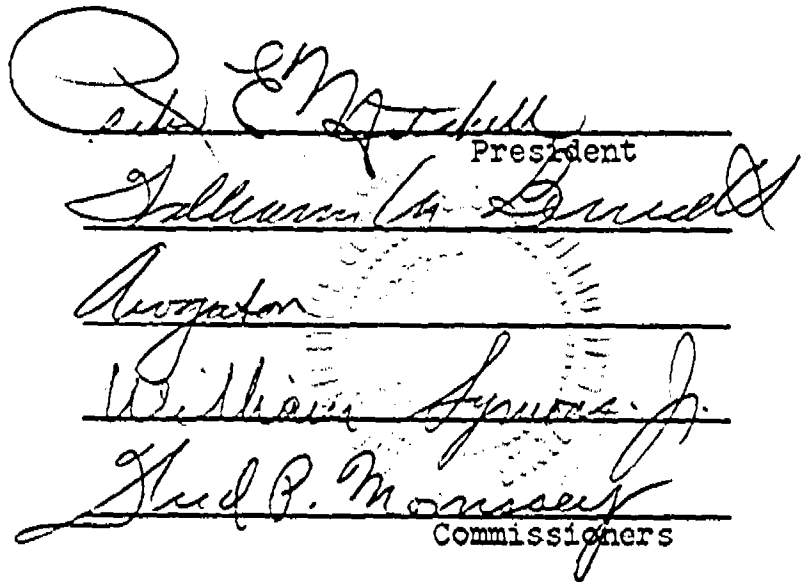 Peter E. Mitchell
President
William M. Bennett
A. W. Gatov
William Symons. Jr.
Fred P. Morrissey
Commissioners